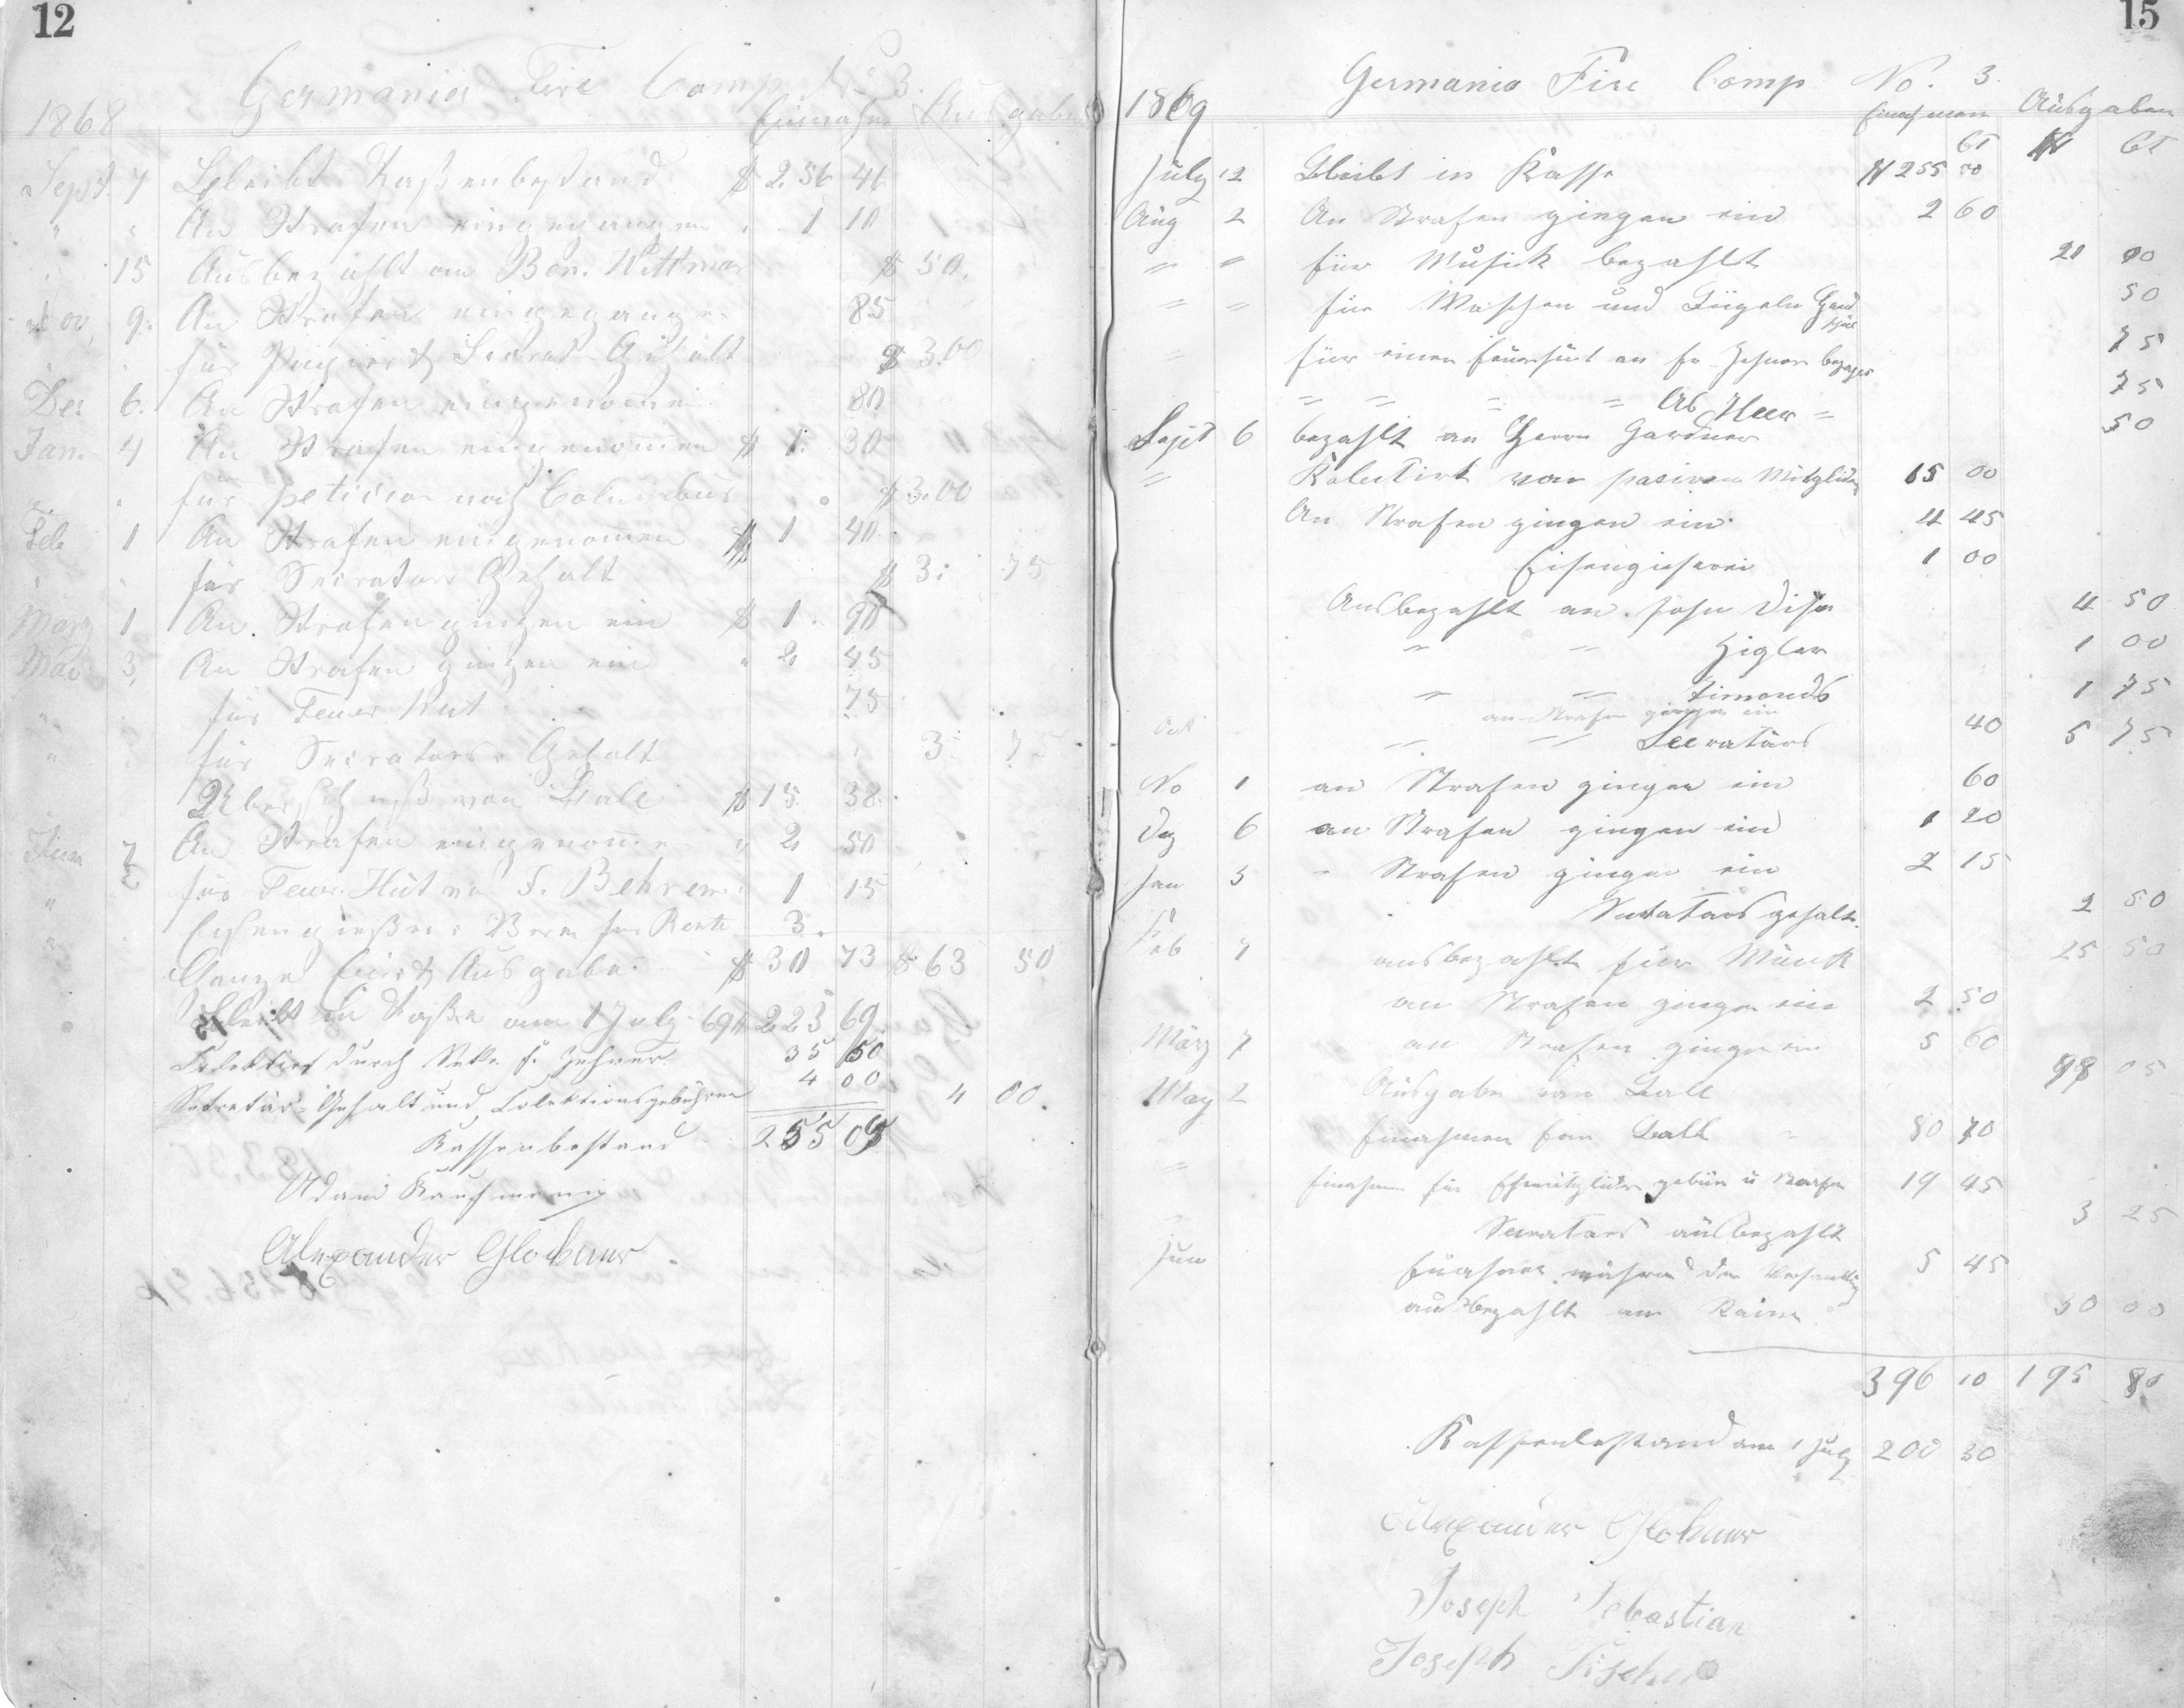 12
Germania Fire Comp No 3.
1868 Einnahm Ausgabe
Sept. 7 Bleibt Kaßenbestand $ 256 46
" " An Strafen eingegangen " 1 10
" 15 Ausbezahlt an Ben. Wittmar $ 50.
Nov, 9. An Strafen eingegangen 85
" " für Secret Gehalt $ 3.00
Dec 6. An Strafen eingenomen 80
Jan. 4 An Strafen eingenomen $ 1. 30
" " für peticion nach Columbus $ 3.00
Feb 1 An Strafen eingenomen $ 1 40
" " für Secretars Gehalt $ 3. 75
März 1 An Strafen gingen ein $ 1. 90
Mai 3, An Strafen gingen ein " 2 45
" für Feuer Hut 75
" " für Secretars Gehalt 3. 75
Überschuß von Ball $ 15. 38.
Jun 7 An Strafen eingenome " 2 50
" für Feuer Hut von F. Behrens 1 15
" Eisengießer Verm für Rente 3.
Ganze Ein & Ausgabe $ 30 73 $ 63 50
Bleibt in Kaße am 1 July 69 $ 223 69
Colektirt durch F. Zehner 35 50
Sekretär-Gehalt und Colektionsgebühren 4 00 4 00.
Kassenbestand 255 09
Adam Kaufmann
Alexander Glockner
15
Germania Fire Comp No. 3.
1869 Einahmen Ausgaben
Ct $ Ct
July 12 Bleibt in Kasse $ 255 00
Aug 2 An Strafen gingen ein 2 60
" " für Musick bezahlt 21 00
" " für Waschen und Bügeln Hand 50
" für einen Feuerhut an Fr Zehner bezahlt 75
" " " " Ab Heer " 75
Sept 6 bezahlt an Herrn Gardner 50
" Kolectirt von pasiven Mitglider 15 00
An Strafen gingen ein 4 45
Eisengieserei 1 00
Ausbezahlt an John 4 50
" " Higler 1 00
" " Simonds 1 75
Oct an Strafen gingen ein 40
" " Secratärs 5 75
No 1 an Strafen gingen ein 60
Dez 6 an Strafen gingen ein 1 20
Jan 3 " Strafen gingen ein 2 15
Secratärs gehalt. 2 50
Feb 7 ausbezahlt für Musik 25 50
an Strafen gingen ein 2 50
März 7 an Strafen gingen ein 5 60
May 2 Ausgabe von Ball 98 05
Einahmen fon Ball " 80 70
" Einahmen für gebür u Strafen 19 45
" Secratärs ausbezahlt 3 25
Jun Einahmen während der Versamlung 5 45
ausbezahlt an 30 00
396 10 195 80
Kassenbestand am 1 July 200 30
Alexander Glockner
Joseph Sebastian
Joseph Fischer